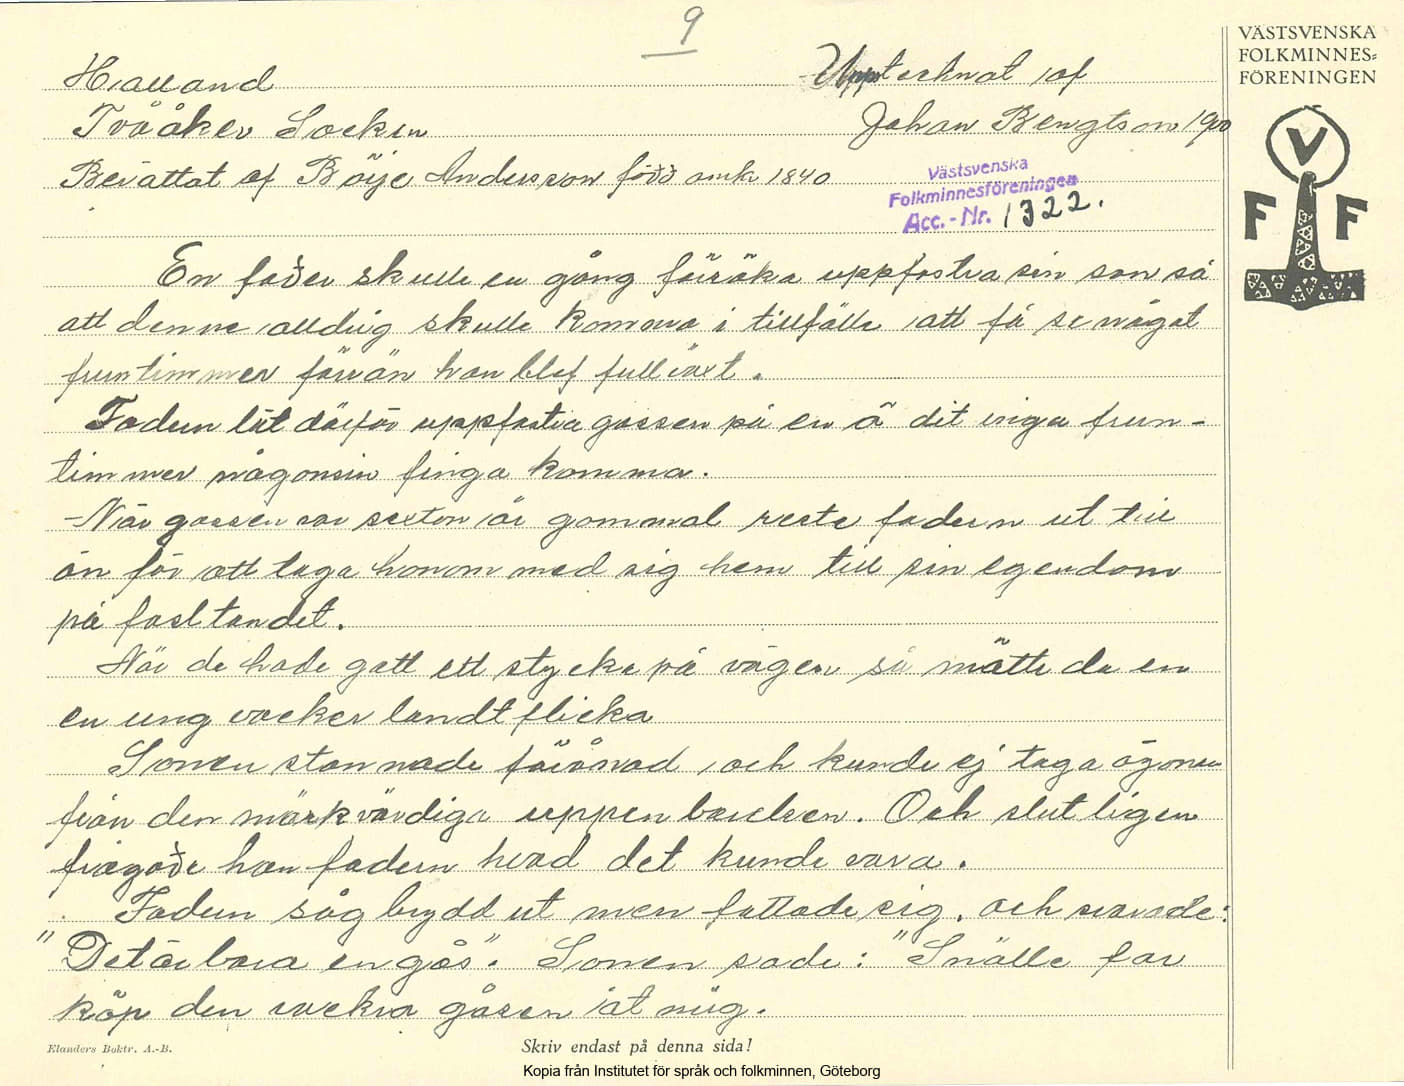 9
VÄSTSVENSKA
FOLKMINNES-
FÖRENINGEN
V
F F
Halland
Upptecknat af
Tvååker Socken
Johan Bengtson 1900
Berättat af Böije Andersson född omkr 1840
Västsvenska
Folkminnesföreningen
Acc.-Nr. 1322.
En fader skulle en gång försöka uppfostra sin son så
att denne alldrig skulle komma i tillfälle att få se något
fruntimmer förrän han blef fullväxt.
Fadern lät därför uppfostra gossen på en ö dit inga frun-
timmer någonsin finga komma.
När gossen var sexton år gammal reste fadern ut till
ön för att taga honom med sig hem till sin egendom
på fastlandet.
När de hade gått ett stycke på vägen så mötte de en
en ung vacker landtflicka
Sonen stannade förvånad och kunde ej taga ögonen
från den märkvärdiga uppenbarelsen. Och slutligen
frågade han fadern hvad det kunde vara.
Fadern såg brydd ut men fattade sig, och svarade:
"Det är bara en gås". Sonen sade: "Snälle far
köp den vackra gåsen åt mig.
Elanders Boktr. A.-B.
Skriv endast på denna sida!
Kopia från Institutet för språk och folkminnen, Göteborg